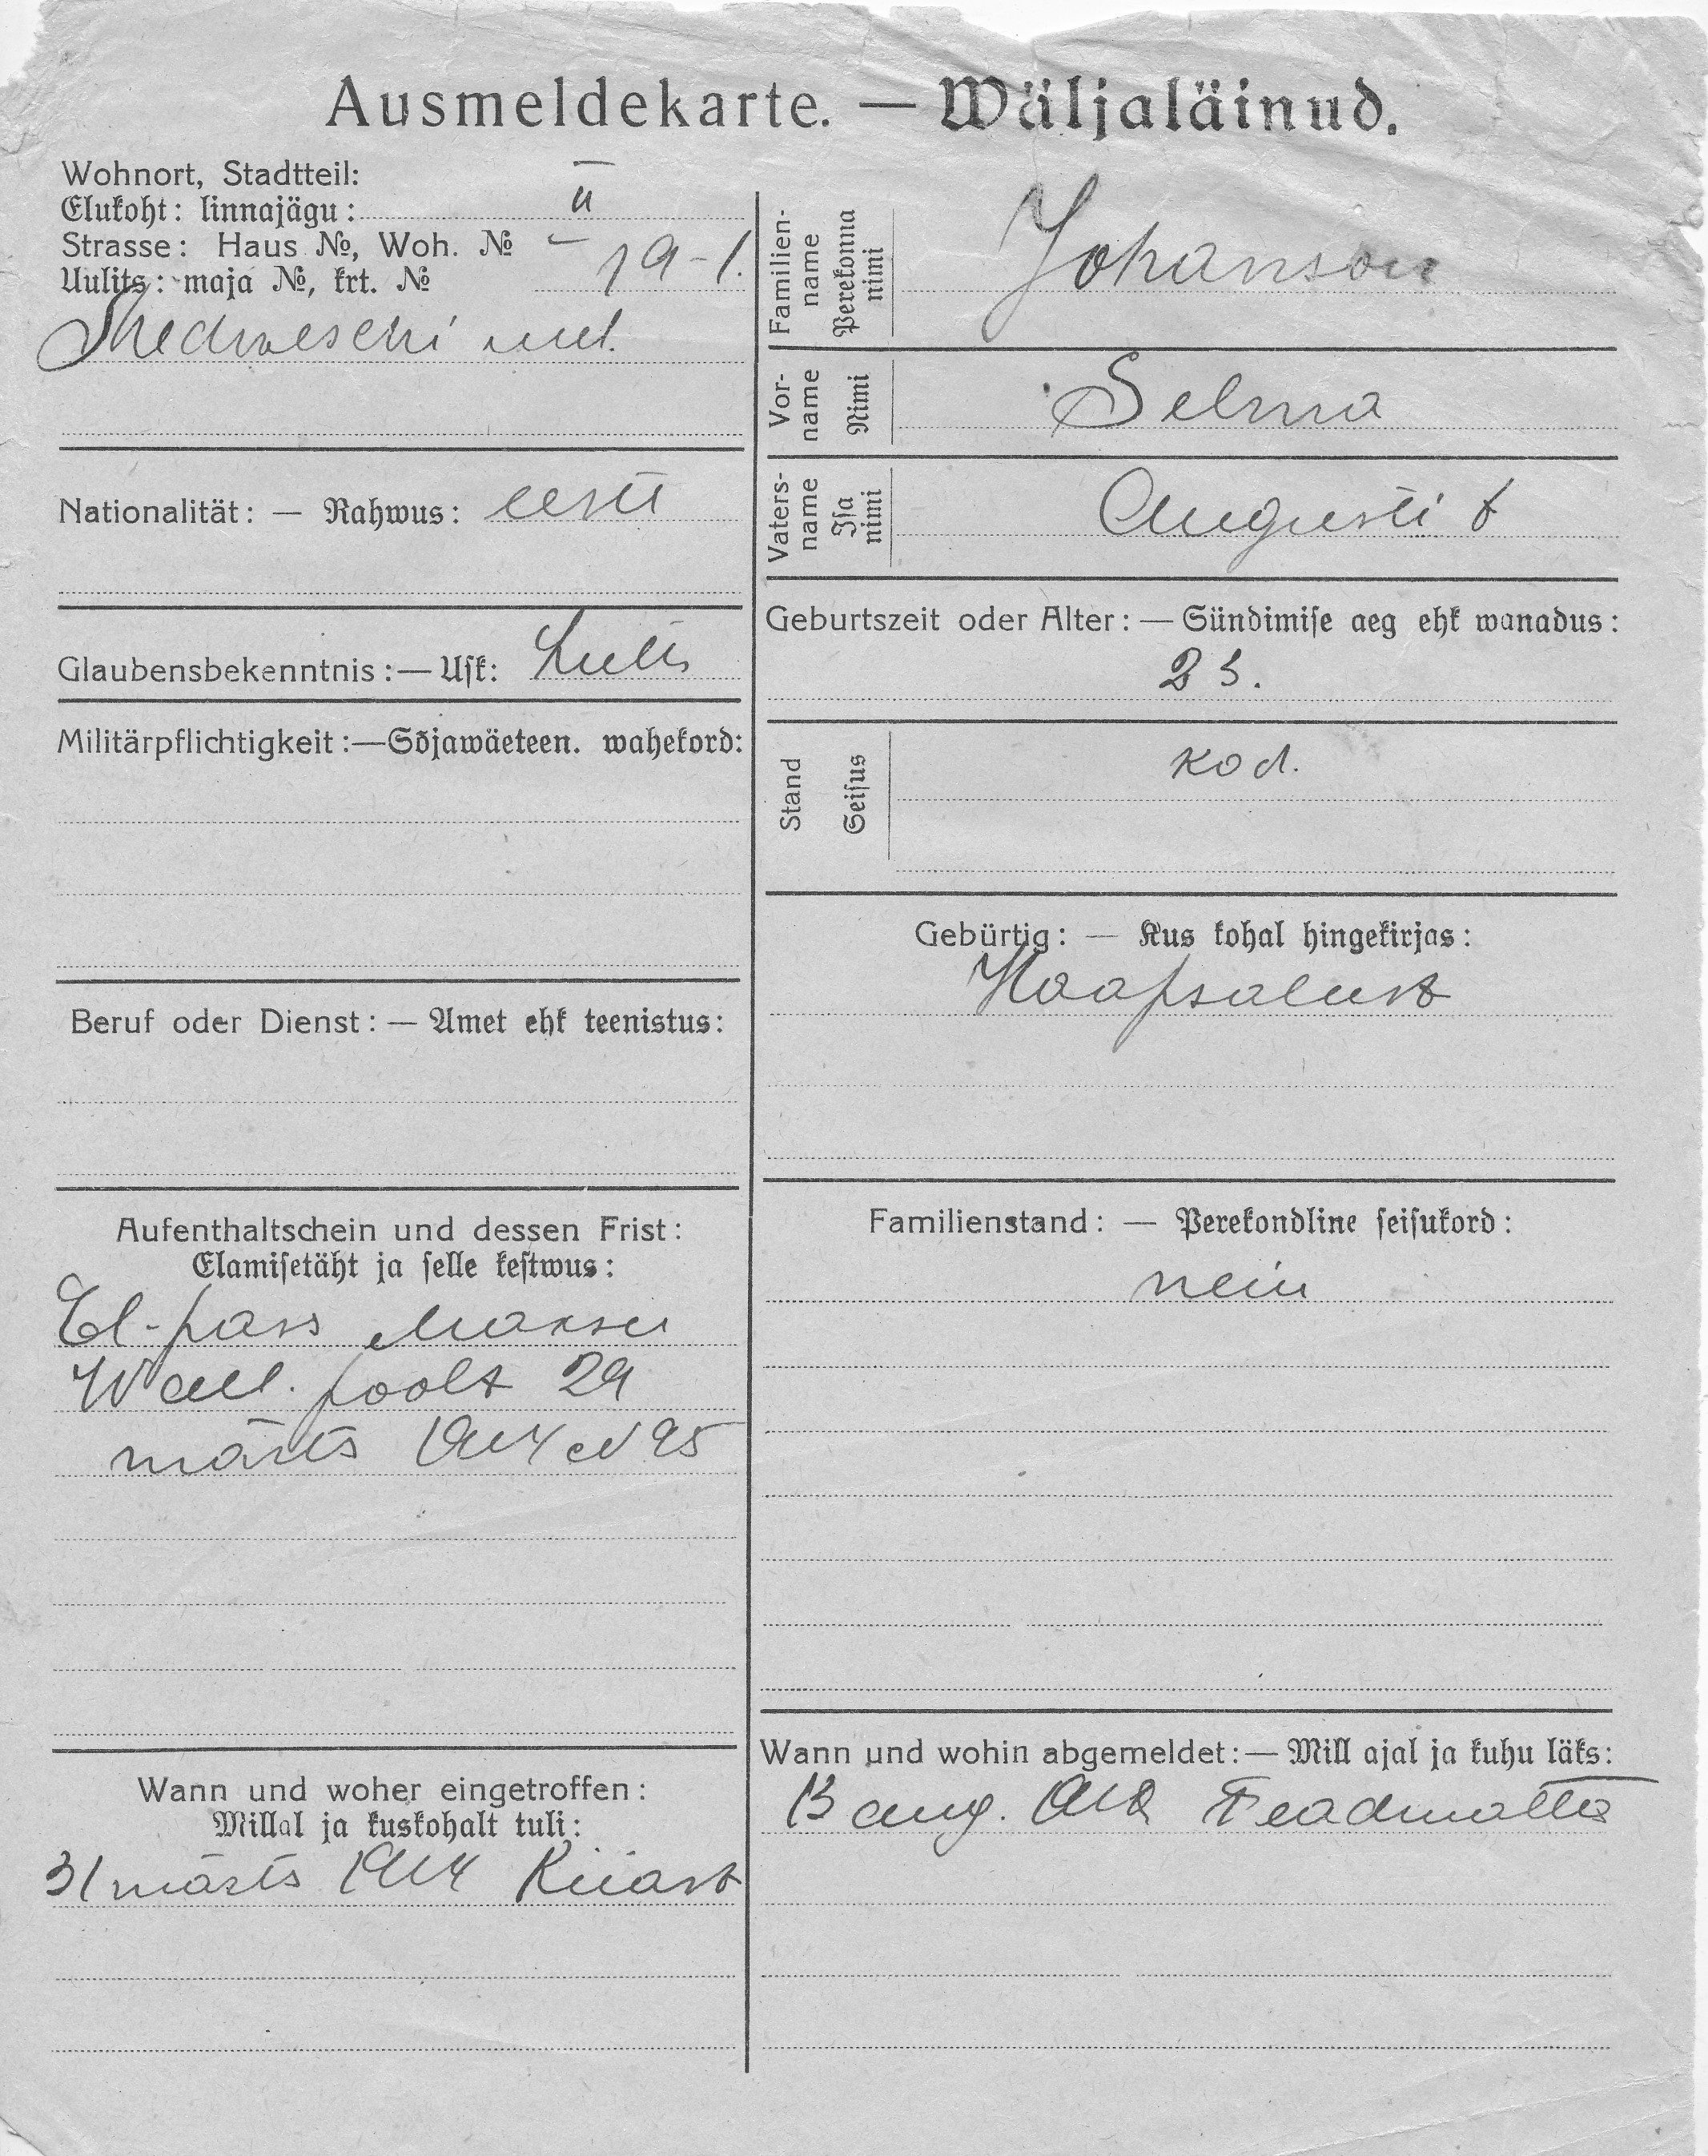 Ausmeldekarte. — Wäljaläinud.
Wohnort, Stadtteil:
Elukoht: linnajägu: II
Strasse: Haus №, Woh. №
Uulits: maja №, krt. № 19-1.
uul.
Nationalität: — Rahwus: eesti
Glaubensbekenntnis: — Usk: Luth
Militärpflichtigkeit: — Sõjawäeteen. wahekord:
Beruf oder Dienst: — Amet ehk teenistus:
Aufenthaltschein und dessen Frist:
Elamisetäht ja selle kestwus:
El-pass
Wall. poolt 29
märts N 95
Wann und woher eingetroffen:
Millal ja kuskohalt tuli:
31 märts
Familien-
name
Perekonna
nimi
Johanson
Vor-
name
Nimi
Selma
Vaters-
name
Isa
nimi
Augusti t
Geburtszeit oder Alter: — Sündimise aeg ehk wanadus:
23.
Stand
Seisus
kod.
Gebürtig: — Kus kohal hingekirjas:
Haapsalust
Familienstand: — Perekondline seisukord:
nein
Wann und wohin abgemeldet: — Mill ajal ja kuhu läks:
13 aug.